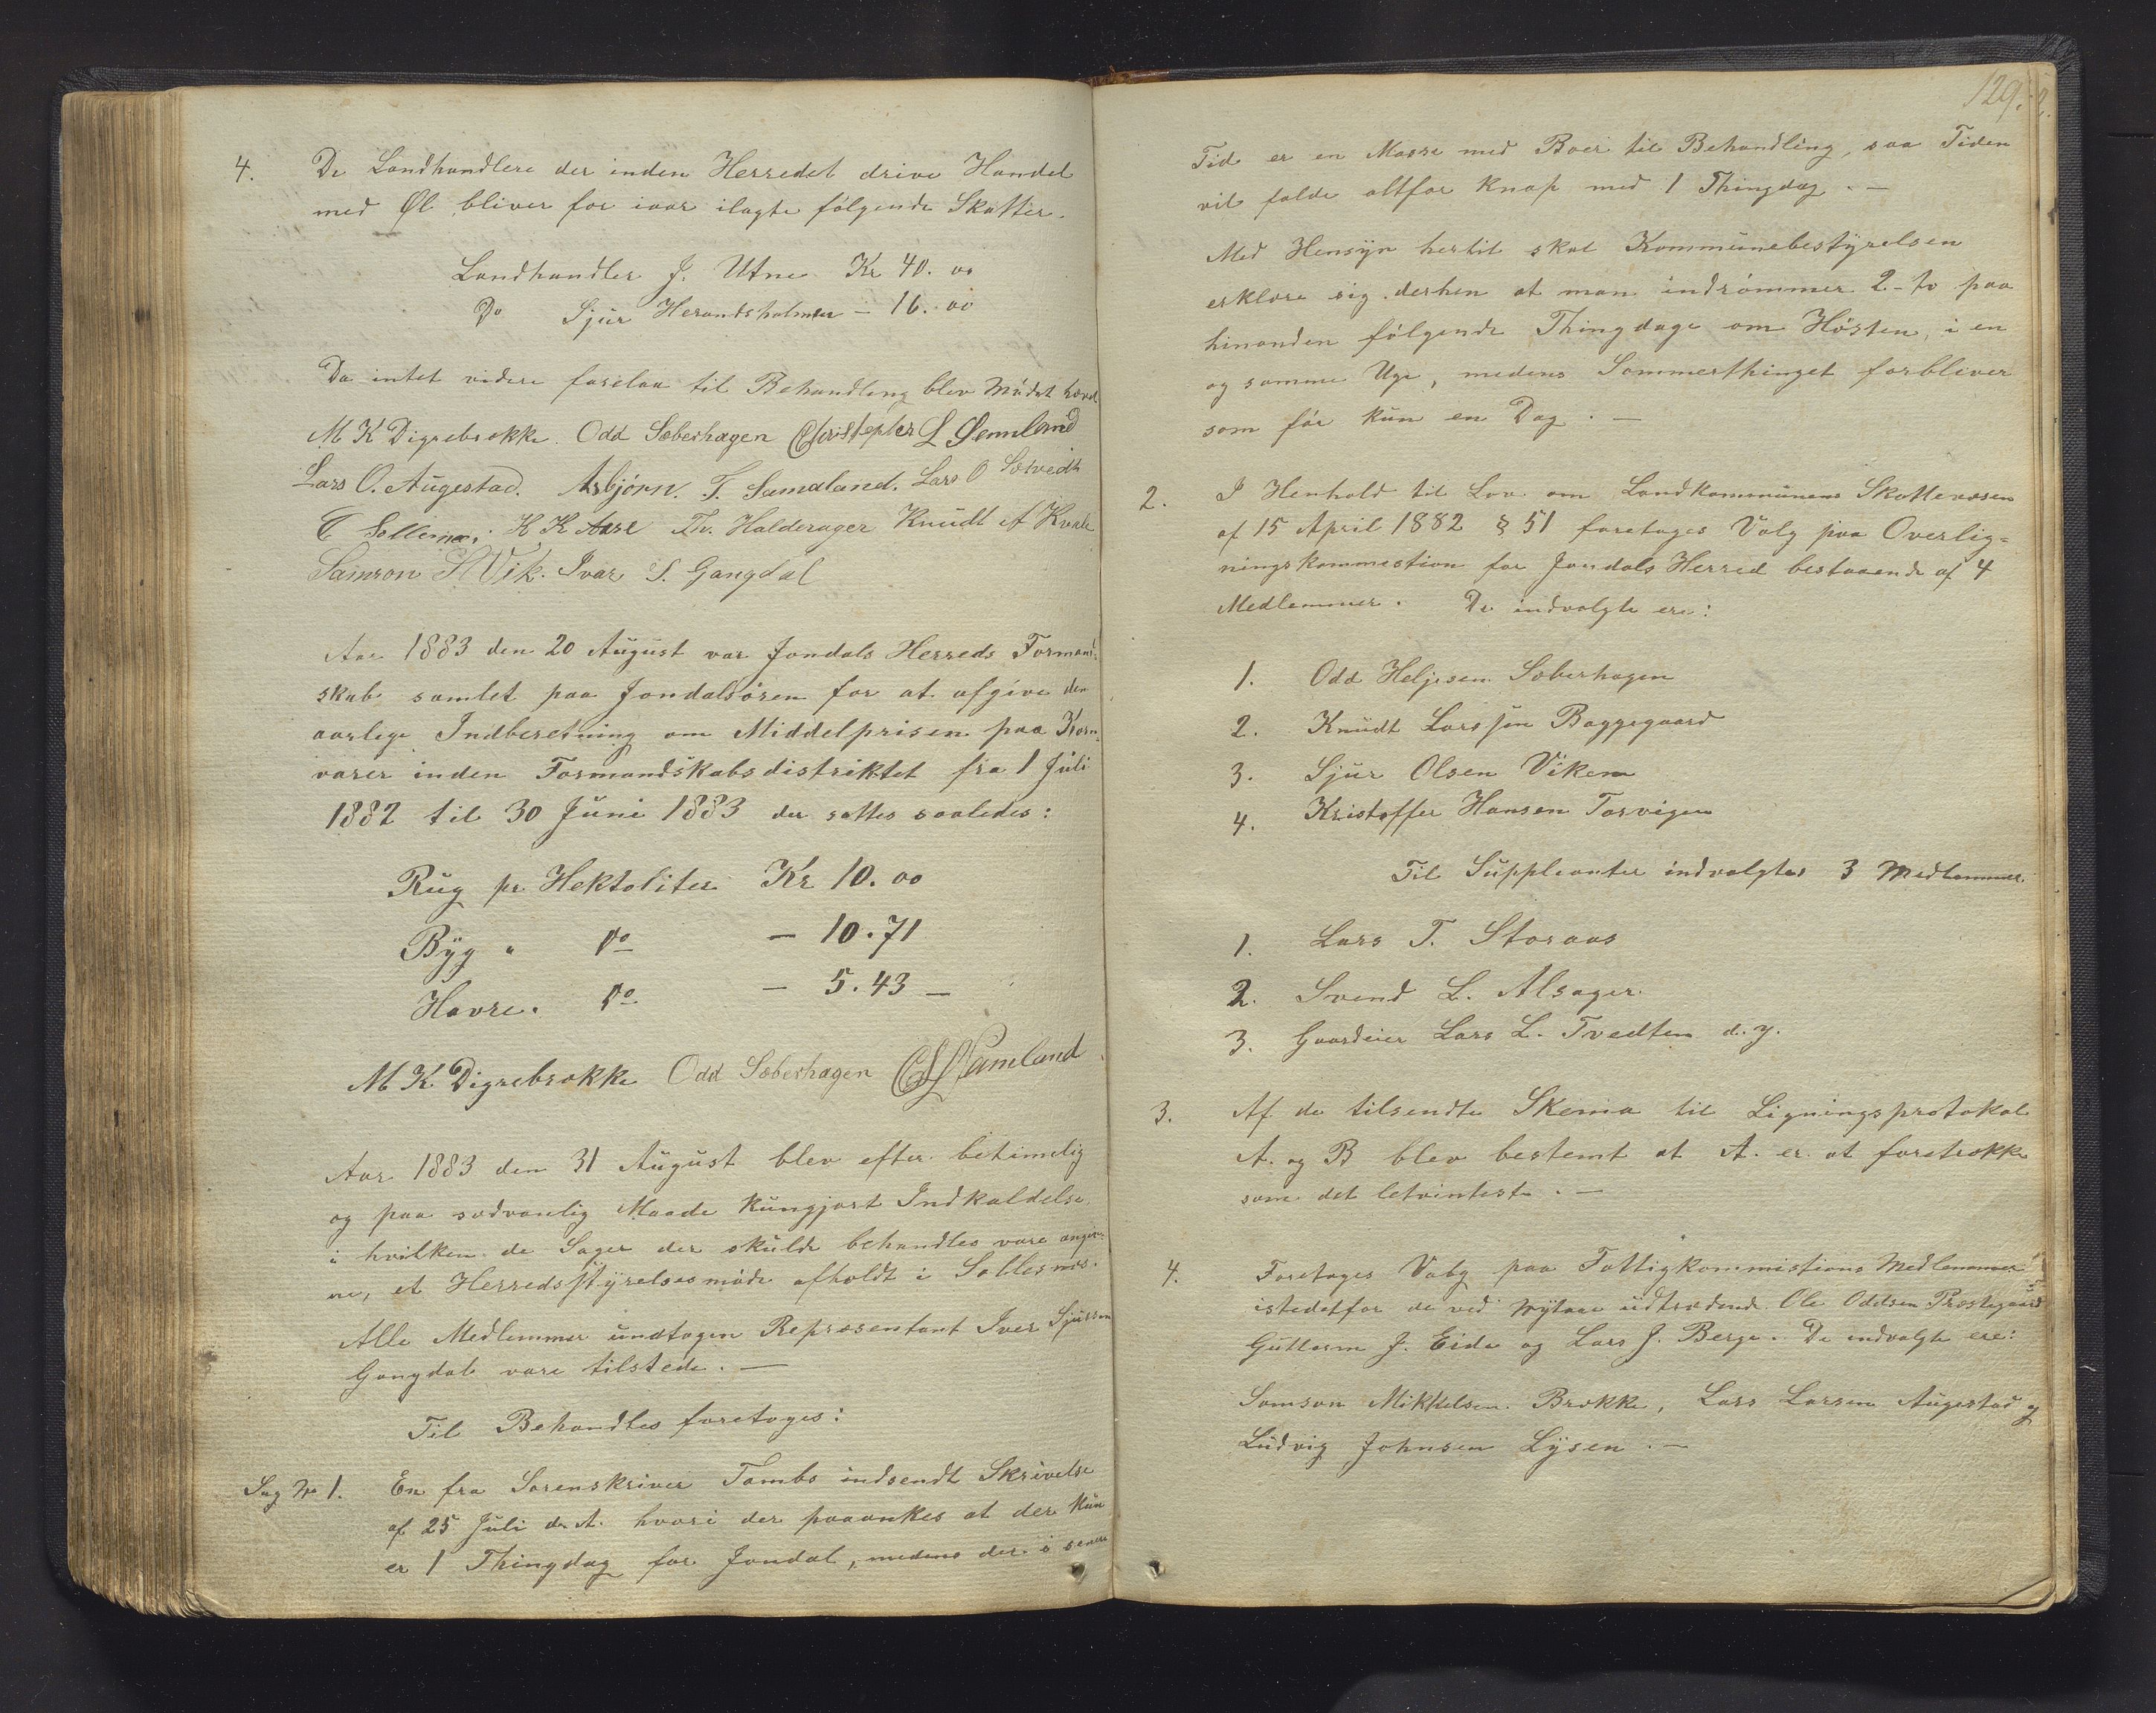 4. De Landhandlere der inden Herredet drive Handel
med Øl bliver for iaar ilagte følgende Skatter.
Landhandler J. Utne Kr 40. 00
Do Sjur Herandsholmen - 16. 00
Da intet videre forelaa til Behandling blev Mødet hævd
M K Digrebrække. Odd Sæberhagen Christopher L Semland
Lars O. Augestad. Asbjørn. T. Samaland. Lars O
H K Aase Th. Halderager Knudt A Kvale
Samson S Vik. Ivar S. Gangdal
Aar 1883 den 20 August var Jondals Herreds Formand-
skab samlet paa Jondalsøren for at afgive den
aarlige Indberetning om Middelprisen paa Korn-
varer inden Formandskabsdistriktet fra 1 Juli
1882 til 30 Juni 1883 der sættes saaledes:
Rug pr. Hektoliter Kr 10. 00
Byg " Do - 10. 71
Havre. Do - 5. 43 -
M K Digrebrække Odd Sæberhagen C L Samland
Aar 1883 den 31 August blev efter betimelig
og paa sædvanlig Maade kungjort Indkaldelse
i hvilken de Sager der skulde behandles vare angiv-
ne, et Herredsstyrelsesmøde afholdt i Sollesnes.
Alle Medlemmer undtagen Repræsentant Iver Sjursen
Gangdal vare tilstede. —
Til Behandles foretoges:
Sag No 1. En fra Sorenskriver Tambs indsendt Skrivelse
af 25 Juli d. A. hvori der paaankes at der kun
er 1 Thingdag for Jondal, medens der i senere
129.
Tid er en Masse med Boer til Behandling, saa Tiden
vil falde altfor knap med 1 Thingdag. —
Med Hensyn hertil skal Kommunebestyrelsen
erklære sig derhen at man indrømmer 2 - to paa
hinanden følgende Thingdage om Høsten, i en
og samme Uge, medens Sommerthinget forbliver
som før kun en Dag. —
2. I Henhold til Lov om Landkommunens Skattevæsen
af 15 April 1882 § 51 foretoges Valg paa Overlig-
ningskommistion for Jondals Herred bestaaende af 4
Medlemmer. De indvalgte ere:
1. Odd Heljesen Sæberhagen
2. Knudt Larssøn Baggegaard
3. Sjur Olsen Viken
4. Kristoffer Hansen Torvigen
Til Suppleanter indvalgtes 3 Medlemmer.
1. Lars T. Storaas
2. Svend L. Alsager
3. Gaardeier Lars L. Tvedten d. y.
3. Af de tilsendte Skema til Ligningsprotokol
A. og B blev bestemt at A. er at foretrække
som det letvinteste. —
4. Foretoges Valg paa Fattigkommistions Medlemmer
istedetfor de ved Nytaar udtrædende Ole Oddsen Præstegaard
Guttorm J. Eide og Lars J. Berge. De indvalgte ere:
Samson Mikkelsen Brække, Lars Larsen Augestad og
Ludvig Johnsen Lysen. —